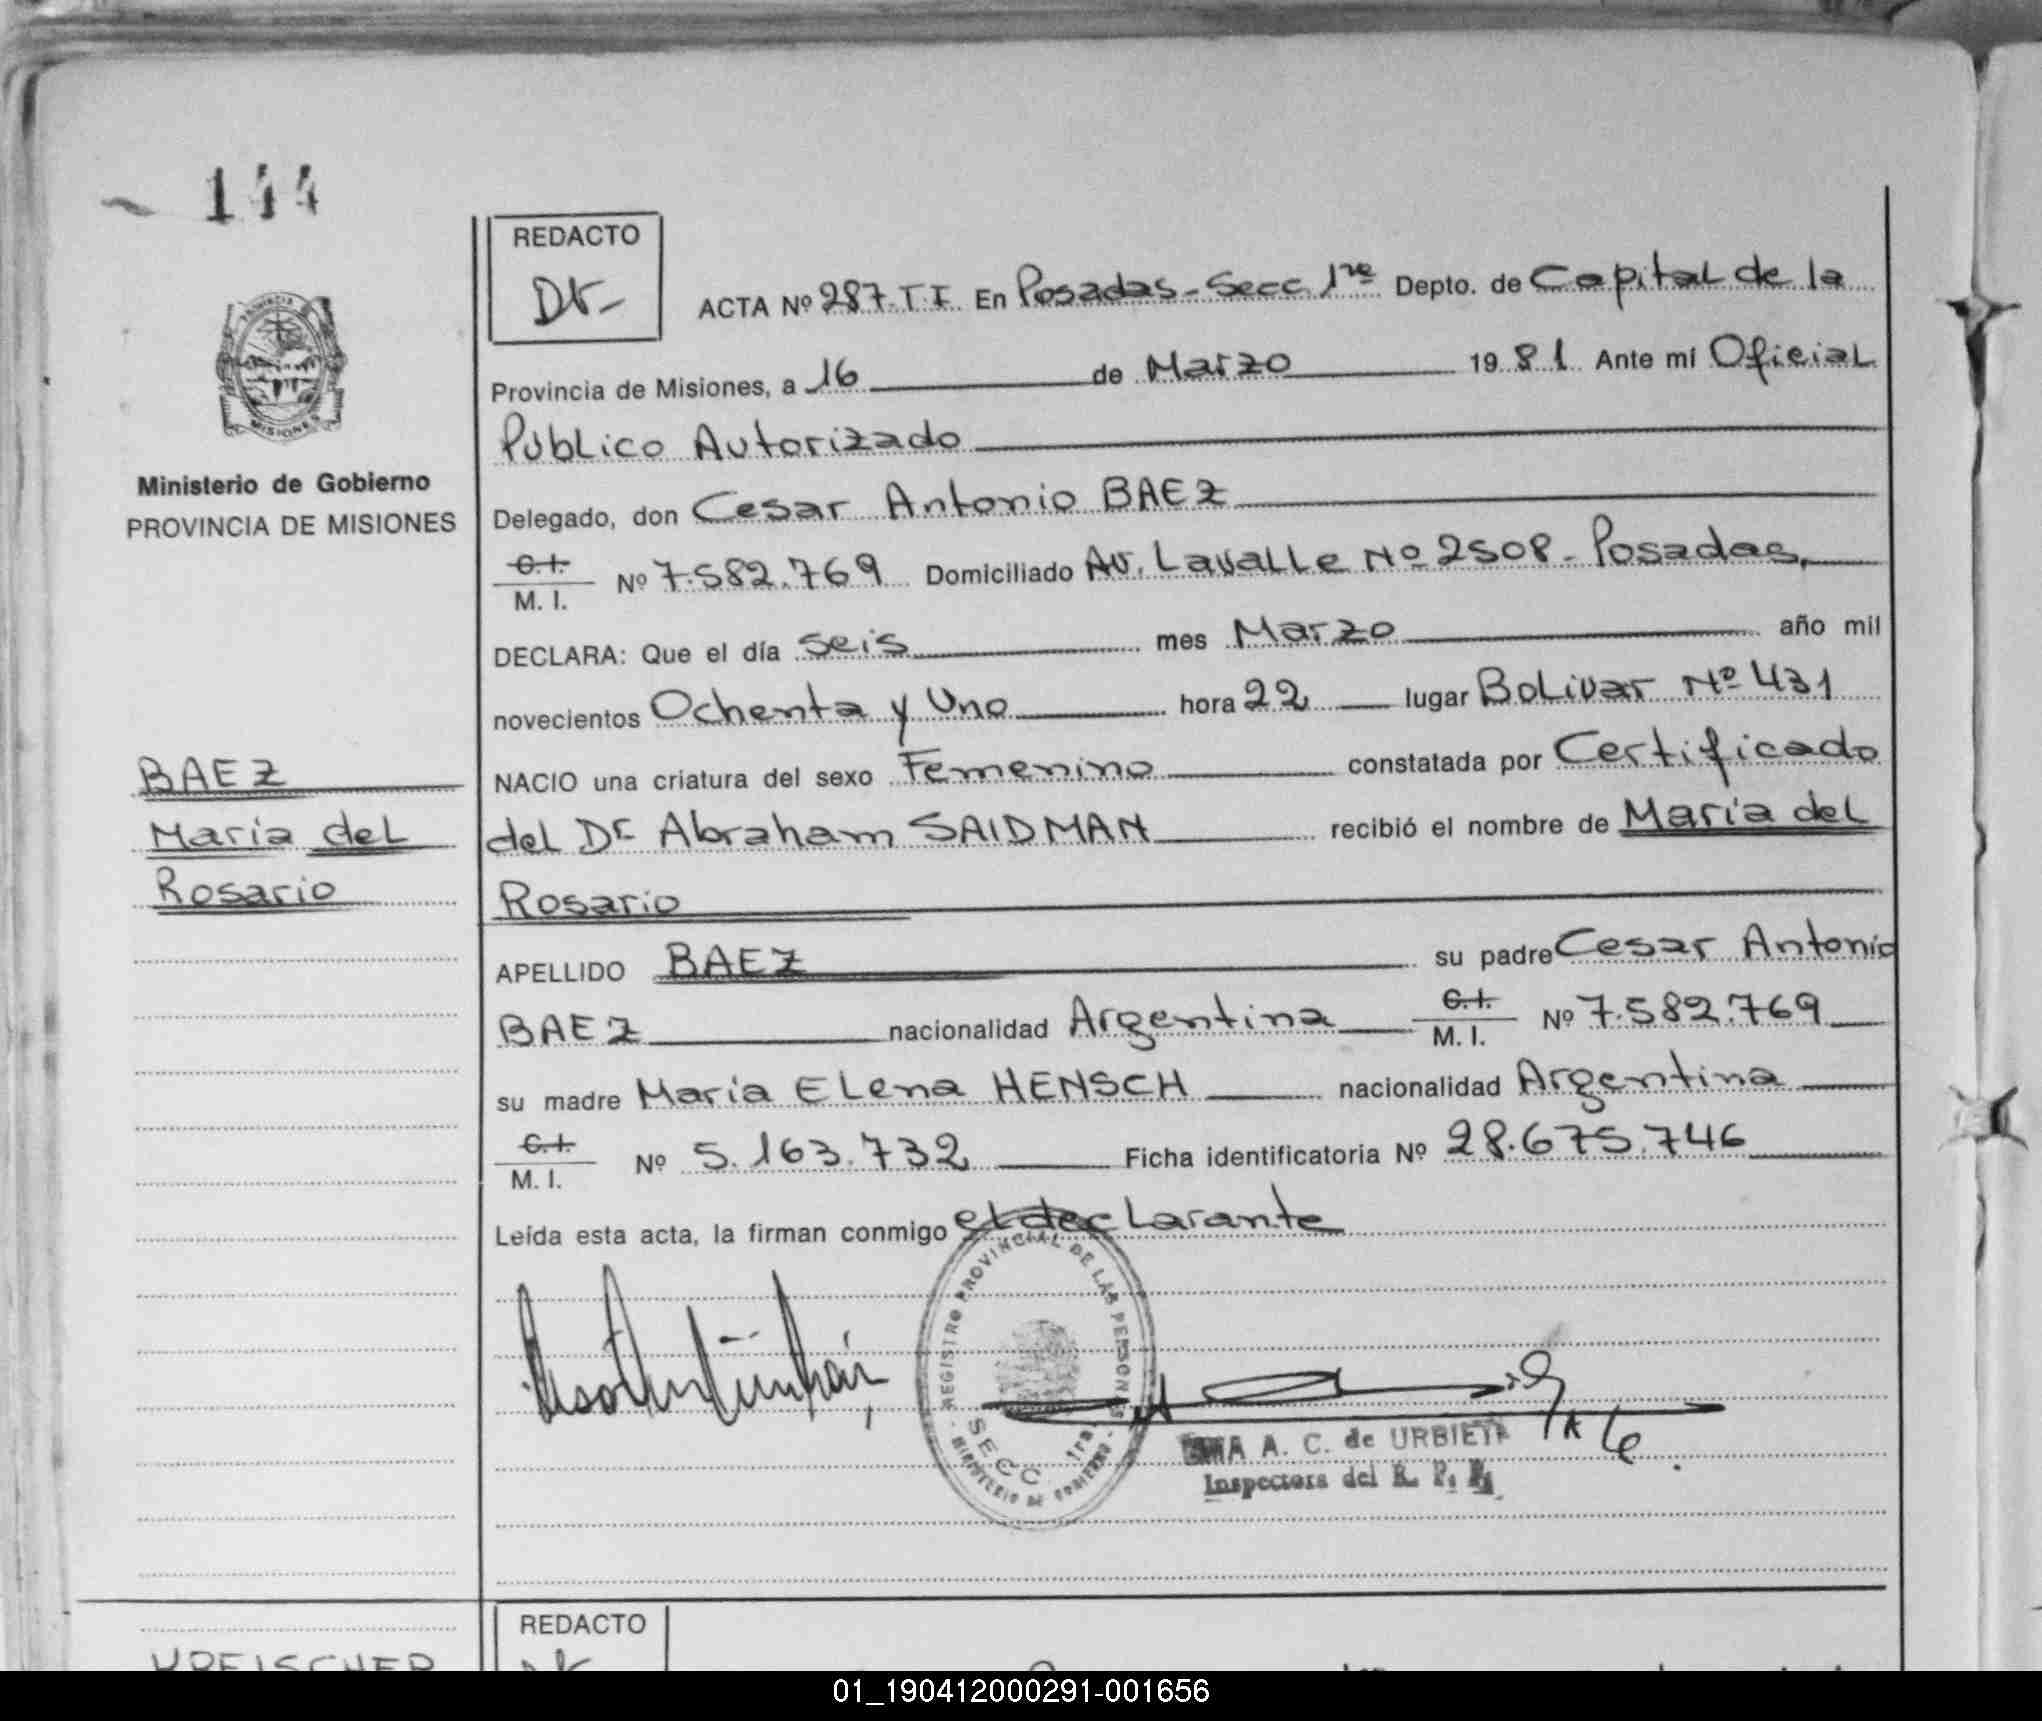 144
REDACTO
Dr-
ACTA Nº 287.T.I. En Posadas-Secc 1ra Depto. de Capital de la
Provincia de Misiones, a 16 de Marzo 1981. Ante mi Oficial
Publico Autorizado
PROVINCIA
MISIONES
Ministerio de Gobierno
PROVINCIA DE MISIONES
Delegado, don Cesar Antonio BAEZ
C.I.
M. I. Nº 7.582.769 Domiciliado Av. Lavalle Nº 2508 - Posadas,
DECLARA: Que el día seis mes Marzo año mil
novecientos Ochenta y Uno hora 22 lugar Bolivar Nº 431
NACIO una criatura del sexo Femenino constatada por Certificado
del Dr Abraham SAIDMAN recibió el nombre de María del
Rosario
BAEZ
María del
Rosario
APELLIDO BAEZ su padre Cesar Antonio
BAEZ nacionalidad Argentina C.I. M. I. Nº 7.582.769
su madre María Elena HENSCH nacionalidad Argentina
C.I.
M. I. Nº 5.163.732 Ficha identificatoria Nº 28.675.746
Leída esta acta, la firman conmigo el declarante
REGISTRO PROVINCIAL DE LAS PERSONAS
SECC. 1ra.
MINISTERIO DE GOBIERNO
A. C. de URBIETA
Inspectora del R. P.
REDACTO
KREISCHER
01_190412000291-001656